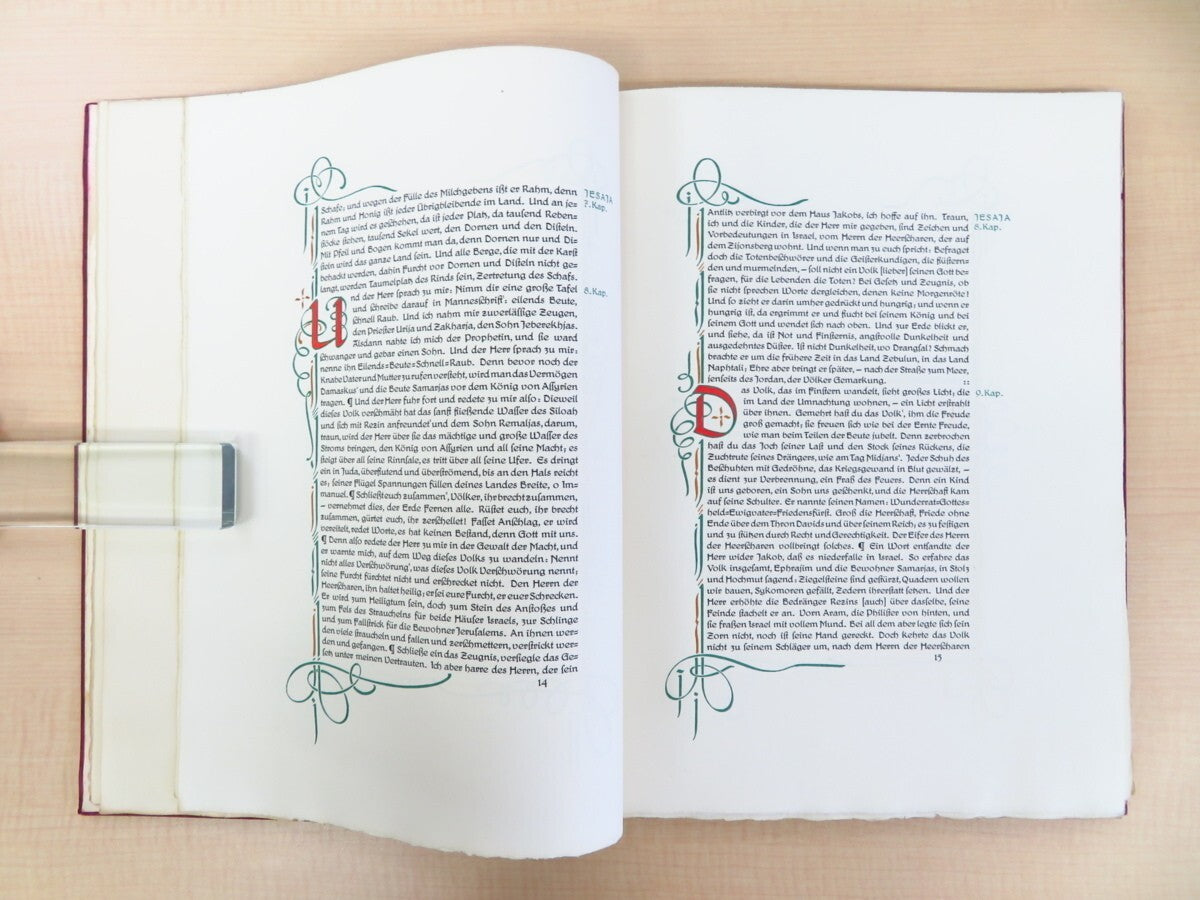 Schafe, und wegen der Fülle des Milchgebens ißt er Rahm, denn
Rahm und Honig ißt jeder Übrigbleibende im Land. Und an je=
nem Tag wird es geschehen, da ist jeder Platz, da tausend Reben=
stöcke stehen, tausend Sekel wert, den Dornen und den Disteln.
Mit Pfeil und Bogen kommt man da, denn Dornen nur und Di=
steln wird das ganze Land sein. Und alle Berge, die mit der Karst
behackt werden, dahin Furcht vor Dornen und Disteln nicht ge=
langt, werden Taumelplatz des Rinds sein, Zertretung des Schafs.
JESAJA
7. Kap.
Und der Herr sprach zu mir: Nimm dir eine große Tafel
und schreibe darauf in Mannesschrift: eilends Beute,
schnell Raub. Und ich nahm mir zuverlässige Zeugen,
den Priester Urija und Zakharja, den Sohn Jeberekhjas.
Alsdann nahte ich mich der Prophetin, und sie ward
schwanger und gebar einen Sohn. Und der Herr sprach zu mir:
nenne ihn Eilends=Beute=Schnell=Raub. Denn bevor noch der
Knabe Vater und Mutter zu rufen versteht, wird man das Vermögen
Damaskus' und die Beute Samarjas vor dem König von Assyrien
tragen. ¶ Und der Herr fuhr fort und redete zu mir also: Dieweil
dieses Volk verschmäht hat das sanft fließende Wasser des Siloah
und sich mit Rezin anfreundet' und dem Sohn Remaljas, darum,
traun, wird der Herr über sie das mächtige und große Wasser des
Stroms bringen, den König von Assyrien und all seine Macht; es
steigt über all seine Rinnsale, es tritt über all seine Ufer. Es dringt
ein in Juda, überflutend und überströmend, bis an den Hals reicht
es; seiner Flügel Spannungen füllen deines Landes Breite, o Im=
manuel. ¶ Schließt euch zusammen', Völker, ihr brecht zusammen,
– vernehmet dies, der Erde Fernen alle. Rüstet euch, ihr brecht
zusammen, gürtet euch, ihr zerschellet! Fasset Anschlag, er wird
vereitelt, redet Worte, es hat keinen Bestand, denn Gott mit uns.
¶ Denn also redete der Herr zu mir in der Gewalt der Macht, und
er warnte mich, auf dem Weg dieses Volks zu wandeln: Nennt
nicht alles Verschwörung', was dieses Volk Verschwörung nennt;
seine Furcht fürchtet nicht und erschrecket nicht. Den Herrn der
Heerscharen, ihn haltet heilig; er sei eure Furcht, er euer Schrecken.
Er wird zum Heiligtum sein, doch zum Stein des Anstoßes und
zum Fels des Strauchelns für beide Häuser Israels, zur Schlinge
und zum Fallstrick für die Bewohner Jerusalems. An ihnen wer=
den viele straucheln und fallen und zerschmettern, verstrickt wer=
den und gefangen. ¶ Schließe ein das Zeugnis, versiegle das Ge=
setz unter meinen Vertrauten. Ich aber harre des Herrn, der sein
8. Kap.
14
Antlitz verbirgt vor dem Haus Jakobs, ich hoffe auf ihn. Traun,
ich und die Kinder, die der Herr mir gegeben, sind Zeichen und
Vorbedeutungen in Israel, vom Herrn der Heerscharen, der auf
dem Zijonsberg wohnt. Und wenn man zu euch spricht: Befraget
doch die Totenbeschwörer und die Geisterkundigen, die flüstern=
den und murmelnden, – soll nicht ein Volk [lieber] seinen Gott be=
fragen, für die Lebenden die Toten? Bei Gesetz und Zeugnis, ob
sie nicht sprechen Worte dergleichen, denen keine Morgenröte!
Und so zieht er darin umher gedrückt und hungrig; und wenn er
hungrig ist, da ergrimmt er und flucht bei seinem König und bei
seinem Gott und wendet sich nach oben. Und zur Erde blickt er,
und siehe, da ist Not und Finsternis, angstvolle Dunkelheit und
ausgedehntes Düster. Ist nicht Dunkelheit, wo Drangsal? Schmach
brachte er um die frühere Zeit in das Land Zebulun, in das Land
Naphtali; Ehre aber bringt er später, – nach der Straße zum Meer,
jenseits des Jordan, der Völker Gemarkung. ::
JESAJA
8. Kap.
Das Volk, das im Finstern wandelt, sieht großes Licht; die
im Land der Umnachtung wohnen, – ein Licht erstrahlt
über ihnen. Gemehrt hast du das Volk', ihm die Freude
groß gemacht; sie freuen sich wie bei der Ernte Freude,
wie man beim Teilen der Beute jubelt. Denn zerbrochen
hast du das Joch seiner Last und den Stock seines Rückens, die
Zuchtrute seines Drängers, wie am Tag Midjans'. Jeder Schuh des
Beschuhten mit Gedröhne, das Kriegsgewand in Blut gewälzt, –
es dient zur Verbrennung, ein Fraß des Feuers. Denn ein Kind
ist uns geboren, ein Sohn uns geschenkt, und die Herrschaft kam
auf seine Schulter. Er nannte seinen Namen: Wunderrat=Gottes=
held=Ewigvater=Friedensfürst. Groß die Herrschaft, Friede ohne
Ende über dem Thron Davids und über seinem Reich; es zu festigen
und zu stützen durch Recht und Gerechtigkeit. Der Eifer des Herrn
der Heerscharen vollbringt solches. ¶ Ein Wort entsandte der
Herr wider Jakob, daß es niederfalle in Israel. So erfahre das
Volk insgesamt, Ephrajim und die Bewohner Samarjas, in Stolz
und Hochmut sagend: Ziegelsteine sind gestürzt, Quadern wollen
wir bauen, Sykomoren gefällt, Zedern ihrerstatt sehen. Und der
Herr erhöhte die Bedränger Rezins [auch] über dasselbe, seine
Feinde stachelt er an. Vorn Aram, die Philister von hinten, und
sie fraßen Israel mit vollem Mund. Bei all dem aber legte sich sein
Zorn nicht, noch ist seine Hand gereckt. Doch kehrte das Volk
nicht zu seinem Schläger um, nach dem Herrn der Heerscharen
9. Kap.
15